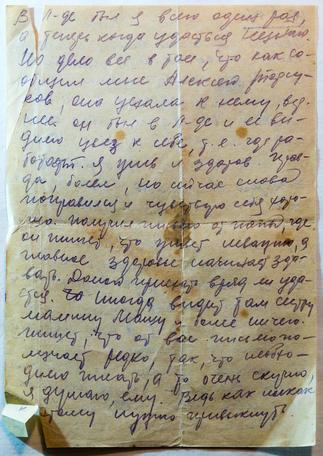 В Л-де был я всего один раз,
а теперь когда удастся неизвестно.
Но дело все в том, что как со-
общил мне Алексей
ков, она уехала к нему, вер-
нее он был в Л-де и ее ви-
димо увез к себе, т.е. где ра-
ботает. Я жив и здоров. Прав-
да, болел, но сейчас снова
поправился и чувствую себя хоро-
шо. Получил письмо от папы, где
он пишет, что живет неважно, а
главное здоровье начинает сда-
вать. Домой приехать вряд ли уда-
стся. Иногда видит там сестру
мамину Машу и более ничего.
Пишет, что от вас письма по-
лучает редко, так, что необхо-
димо писать, а то очень скучно,
я думаю, ему. Ведь как никак
к этому нужно привыкнуть.